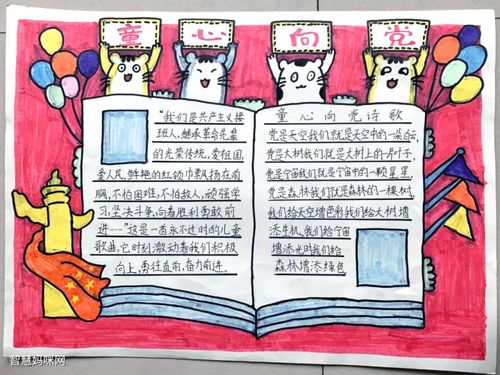 童心向党
"我们是共产主义接
班人，继承革命先辈
的光荣传统，爱祖国，
爱人民，鲜艳的红领巾飘扬在前
胸，不怕困难，不怕敌人，顽强学
习，坚决斗争，向着胜利勇敢前
进……"这是一首永不过时的儿童
歌曲，它时刻激动着我们积极
向上，勇往直前，奋力前进。
童心向党诗歌
党是天空我们就是天空中的一朵白云，
党是大树我们就是大树上的一片叶子，
党是宇宙我们就是宇宙中的一颗星星
党是森林我们就是森林的一棵树，
我们给天空增色彩我们给大树增
添生机，我们给宇宙
增添光明我们给
森林增添绿色
智慧妈咪网